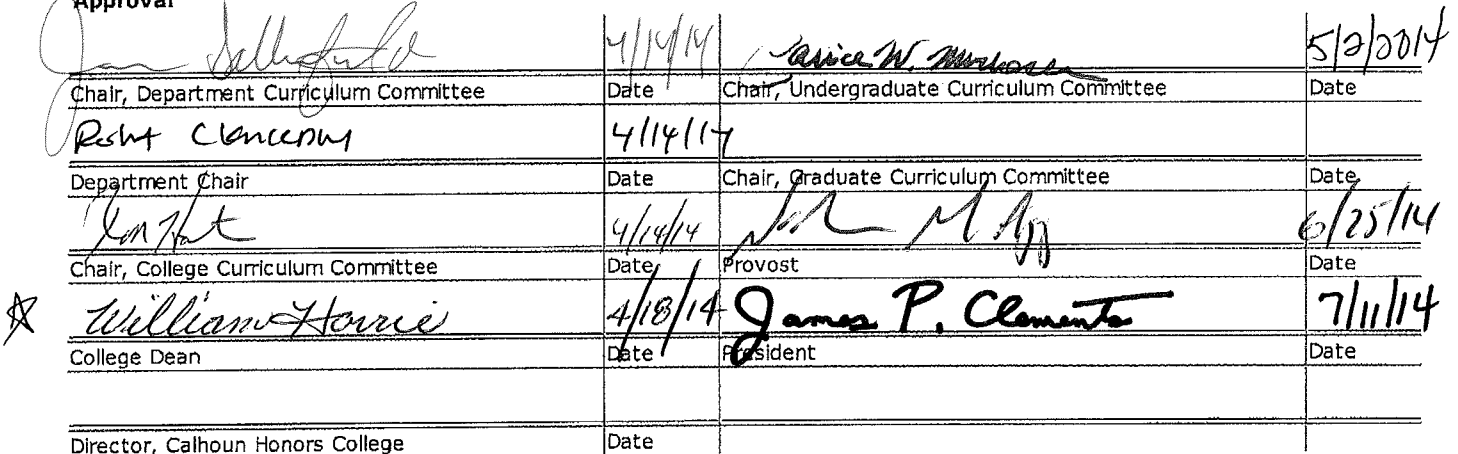 Approval
4/14/14 Janice W. 5/2/2014
Chair, Department Curriculum Committee Date Chair, Undergraduate Curriculum Committee Date
4/14/14
Department Chair Date Chair, Graduate Curriculum Committee Date
4/14/14 6/25/14
Chair, College Curriculum Committee Date Provost Date
William 4/18/14 James P. Clements 7/11/14
College Dean Date President Date
Director, Calhoun Honors College Date